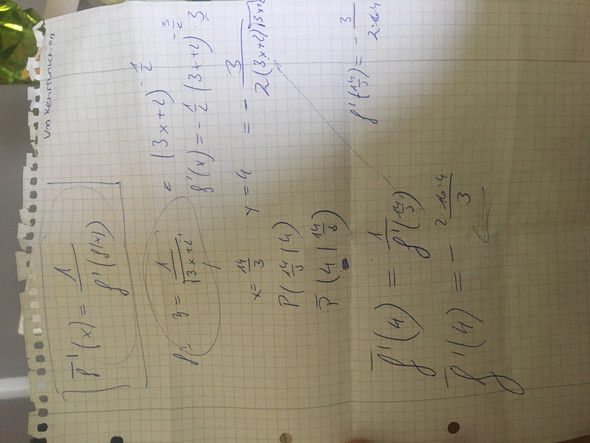 f̄'(x) = 1/f'(f(x))
f: y = 1/√(3x+2) = (3x+2)^(-1/2)
f'(x) = -1/2 (3x+2)^(-3/2) · 3
x = 14/3 y = 4 = - 3/(2(3x+2)√(3x+2))
P(14/3 | 4)
P̄(4 | 14/3)
f'(14/3) = - 3/(2·16·4)
f̄'(4) = 1/f'(14/3)
f̄'(4) = - 2·16·4/3